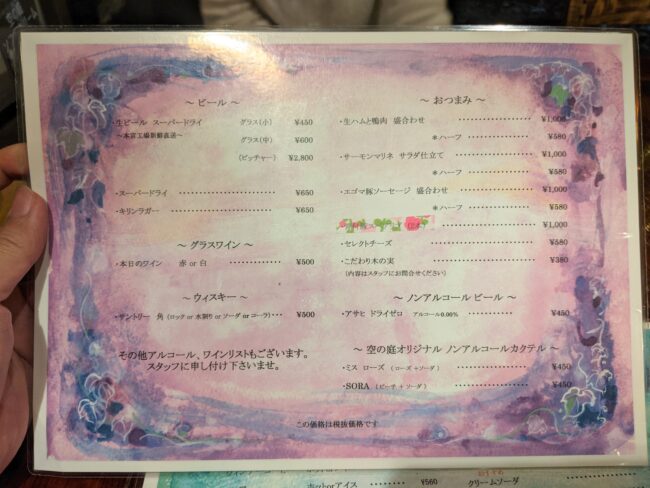 ～ ビール ～
・生ビール スーパードライ グラス(小) ¥450
～本宮工場新鮮直送～ グラス(中) ¥600
(ピッチャー) ¥2,800
・スーパードライ ¥650
・キリンラガー ¥650
～ グラスワイン ～
・本日のワイン 赤 or 白 ¥500
～ ウィスキー ～
・サントリー 角 (ロック or 水割り or ソーダ or コーラ) ¥500
その他アルコール、ワインリストもございます。
スタッフに申し付け下さいませ。
～ おつまみ ～
・生ハムと鴨肉 盛合わせ ¥1,000
＊ハーフ ¥580
・サーモンマリネ サラダ仕立て ¥1,000
＊ハーフ ¥580
・エゴマ豚ソーセージ 盛合わせ ¥1,000
＊ハーフ ¥580
¥1,000
・セレクトチーズ ¥580
・こだわり木の実 ¥380
(内容はスタッフにお問合せください)
～ ノンアルコール ビール ～
・アサヒ ドライゼロ アルコール0.00% ¥450
～ 空の庭オリジナル ノンアルコールカクテル ～
・ミス ローズ （ローズ＋ソーダ） ¥450
・SORA （ピーチ＋ソーダ） ¥450
この価格は税抜価格です
ホットorアイス ¥560 クリームソーダ